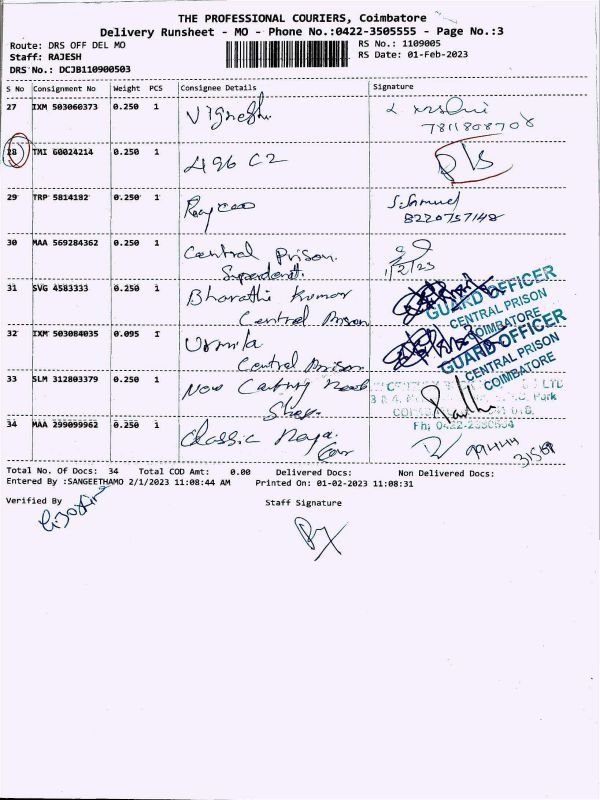 THE PROFESSIONAL COURIERS, Coimbatore
Delivery Runsheet - MO - Phone No.:0422-3505555 - Page No.:3
Route: DRS OFF DEL MO
RS No.: 1109005
Staff: RAJESH
RS Date: 01-Feb-2023
DRS No.: DCJB110900503
S No Consignment No Weight PCS Consignee Details Signature
27 IXM 503060373 0.250 1 Vignesh
7811808708
28 TMI 60024214 0.250 1 496 C2
29 TRP 5814182 0.250 1
8220757148
30 MAA 569284362 0.250 1 Central Prison.
1/2/23
31 SVG 4583333 0.250 1 Bharathi Kumar
Central Prison
GUARD OFFICER
CENTRAL PRISON
COIMBATORE
32 IXM 503084035 0.095 1 Urmila
Central Prison
GUARD OFFICER
CENTRAL PRISON
COIMBATORE
33 SLM 312803379 0.250 1 New
34 MAA 299099962 0.250 1 Classic
Total No. Of Docs: 34 Total COD Amt: 0.00 Delivered Docs: Non Delivered Docs:
Entered By :SANGEETHAMO 2/1/2023 11:08:44 AM Printed On: 01-02-2023 11:08:31
Verified By
Staff Signature